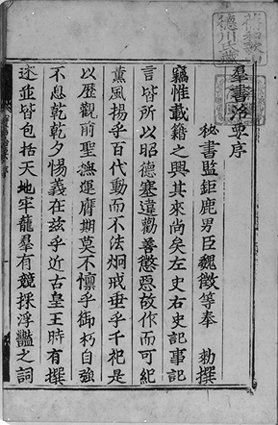 羣書治要序
秘書監鉅鹿男臣魏徵等奉 勅撰
竊惟載籍之興其來尚矣左史右史記事記
言皆所以昭德塞違勸善懲惡故作而可紀
薫風揚乎百代動而不法炯戒垂乎千祀是
以歷觀前聖撫運膺期莫不懍乎御朽自強
不息乾乾夕惕義在茲乎近古皇王時有撰
述並皆包括天地牢籠羣有競採浮豔之詞